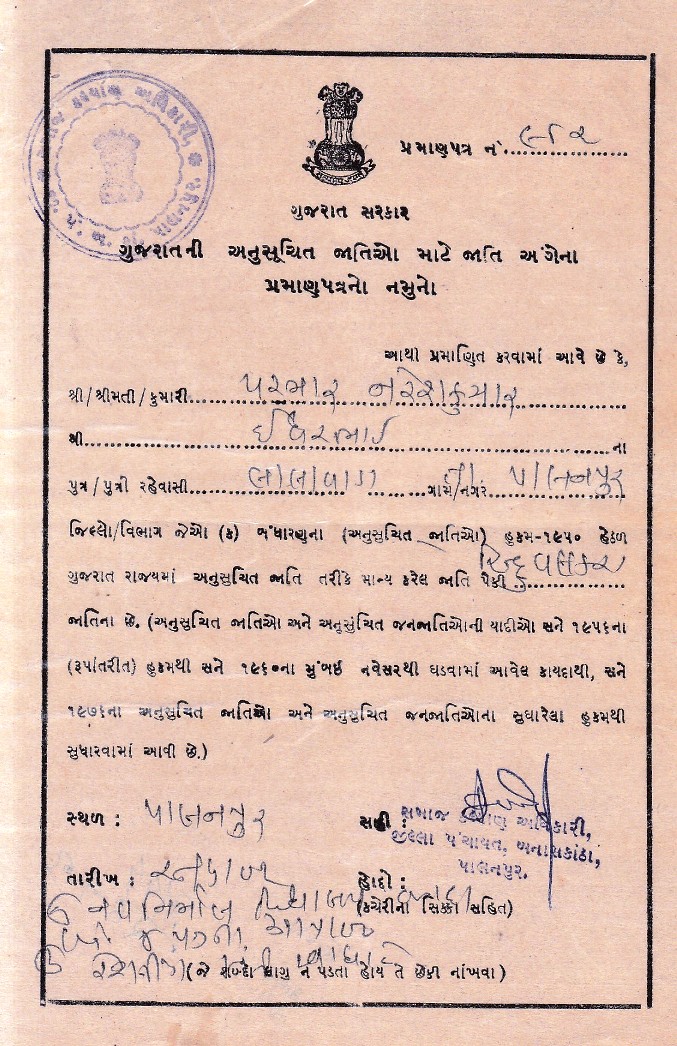 પ્રમાણપત્ર નં. ૯૬૨
ગુજરાત સરકાર
ગુજરાતની અનુસૂચિત જાતિઓ માટે જાતિ અંગેના
પ્રમાણપત્રનો નમુનો
આથી પ્રમાણિત કરવામાં આવે છે કે,
શ્રી/શ્રીમતી/કુમારી પરમાર નરેશકુમાર
શ્રી ઈશ્વરભાઈ ના
પુત્ર/પુત્રી રહેવાસી લાલાવાડા ગામ/નગર તા. પાલનપુર
જિલ્લો/વિભાગ જેઓ (ક) બંધારણના (અનુસુચિત જાતિઓ) હુકમ-૧૯૫૦ હેઠળ
ગુજરાત રાજ્યમાં અનુસુચિત જાતિ તરીકે માન્ય કરેલ જાતિ પૈકી હિન્દુ વણકર
જાતિના છે. (અનુસુચિત જાતિઓ અને અનુસુચિત જનજાતિઓની યાદીઓ સને ૧૯૫૬ના
(રૂપાંતરીત) હુકમથી સને ૧૯૬૦ના મુંબઈ નવેસરથી ઘડવામાં આવેલ કાયદાથી, સને
૧૯૭૬ના અનુસુચિત જાતિઓ અને અનુસુચિત જનજાતિઓના સુધારેલા હુકમથી
સુધારવામાં આવી છે.)
સ્થળ : પાલનપુર
સહી :
સમાજ કલ્યાણ અધિકારી,
જીલ્લા પંચાયત, બનાસકાંઠા,
પાલનપુર.
તારીખ :
હોદ્દો :
(કચેરીના સિક્કા સહિત)
(જે શબ્દો લાગુ ન પડતા હોય તે છેકી નાંખવા)